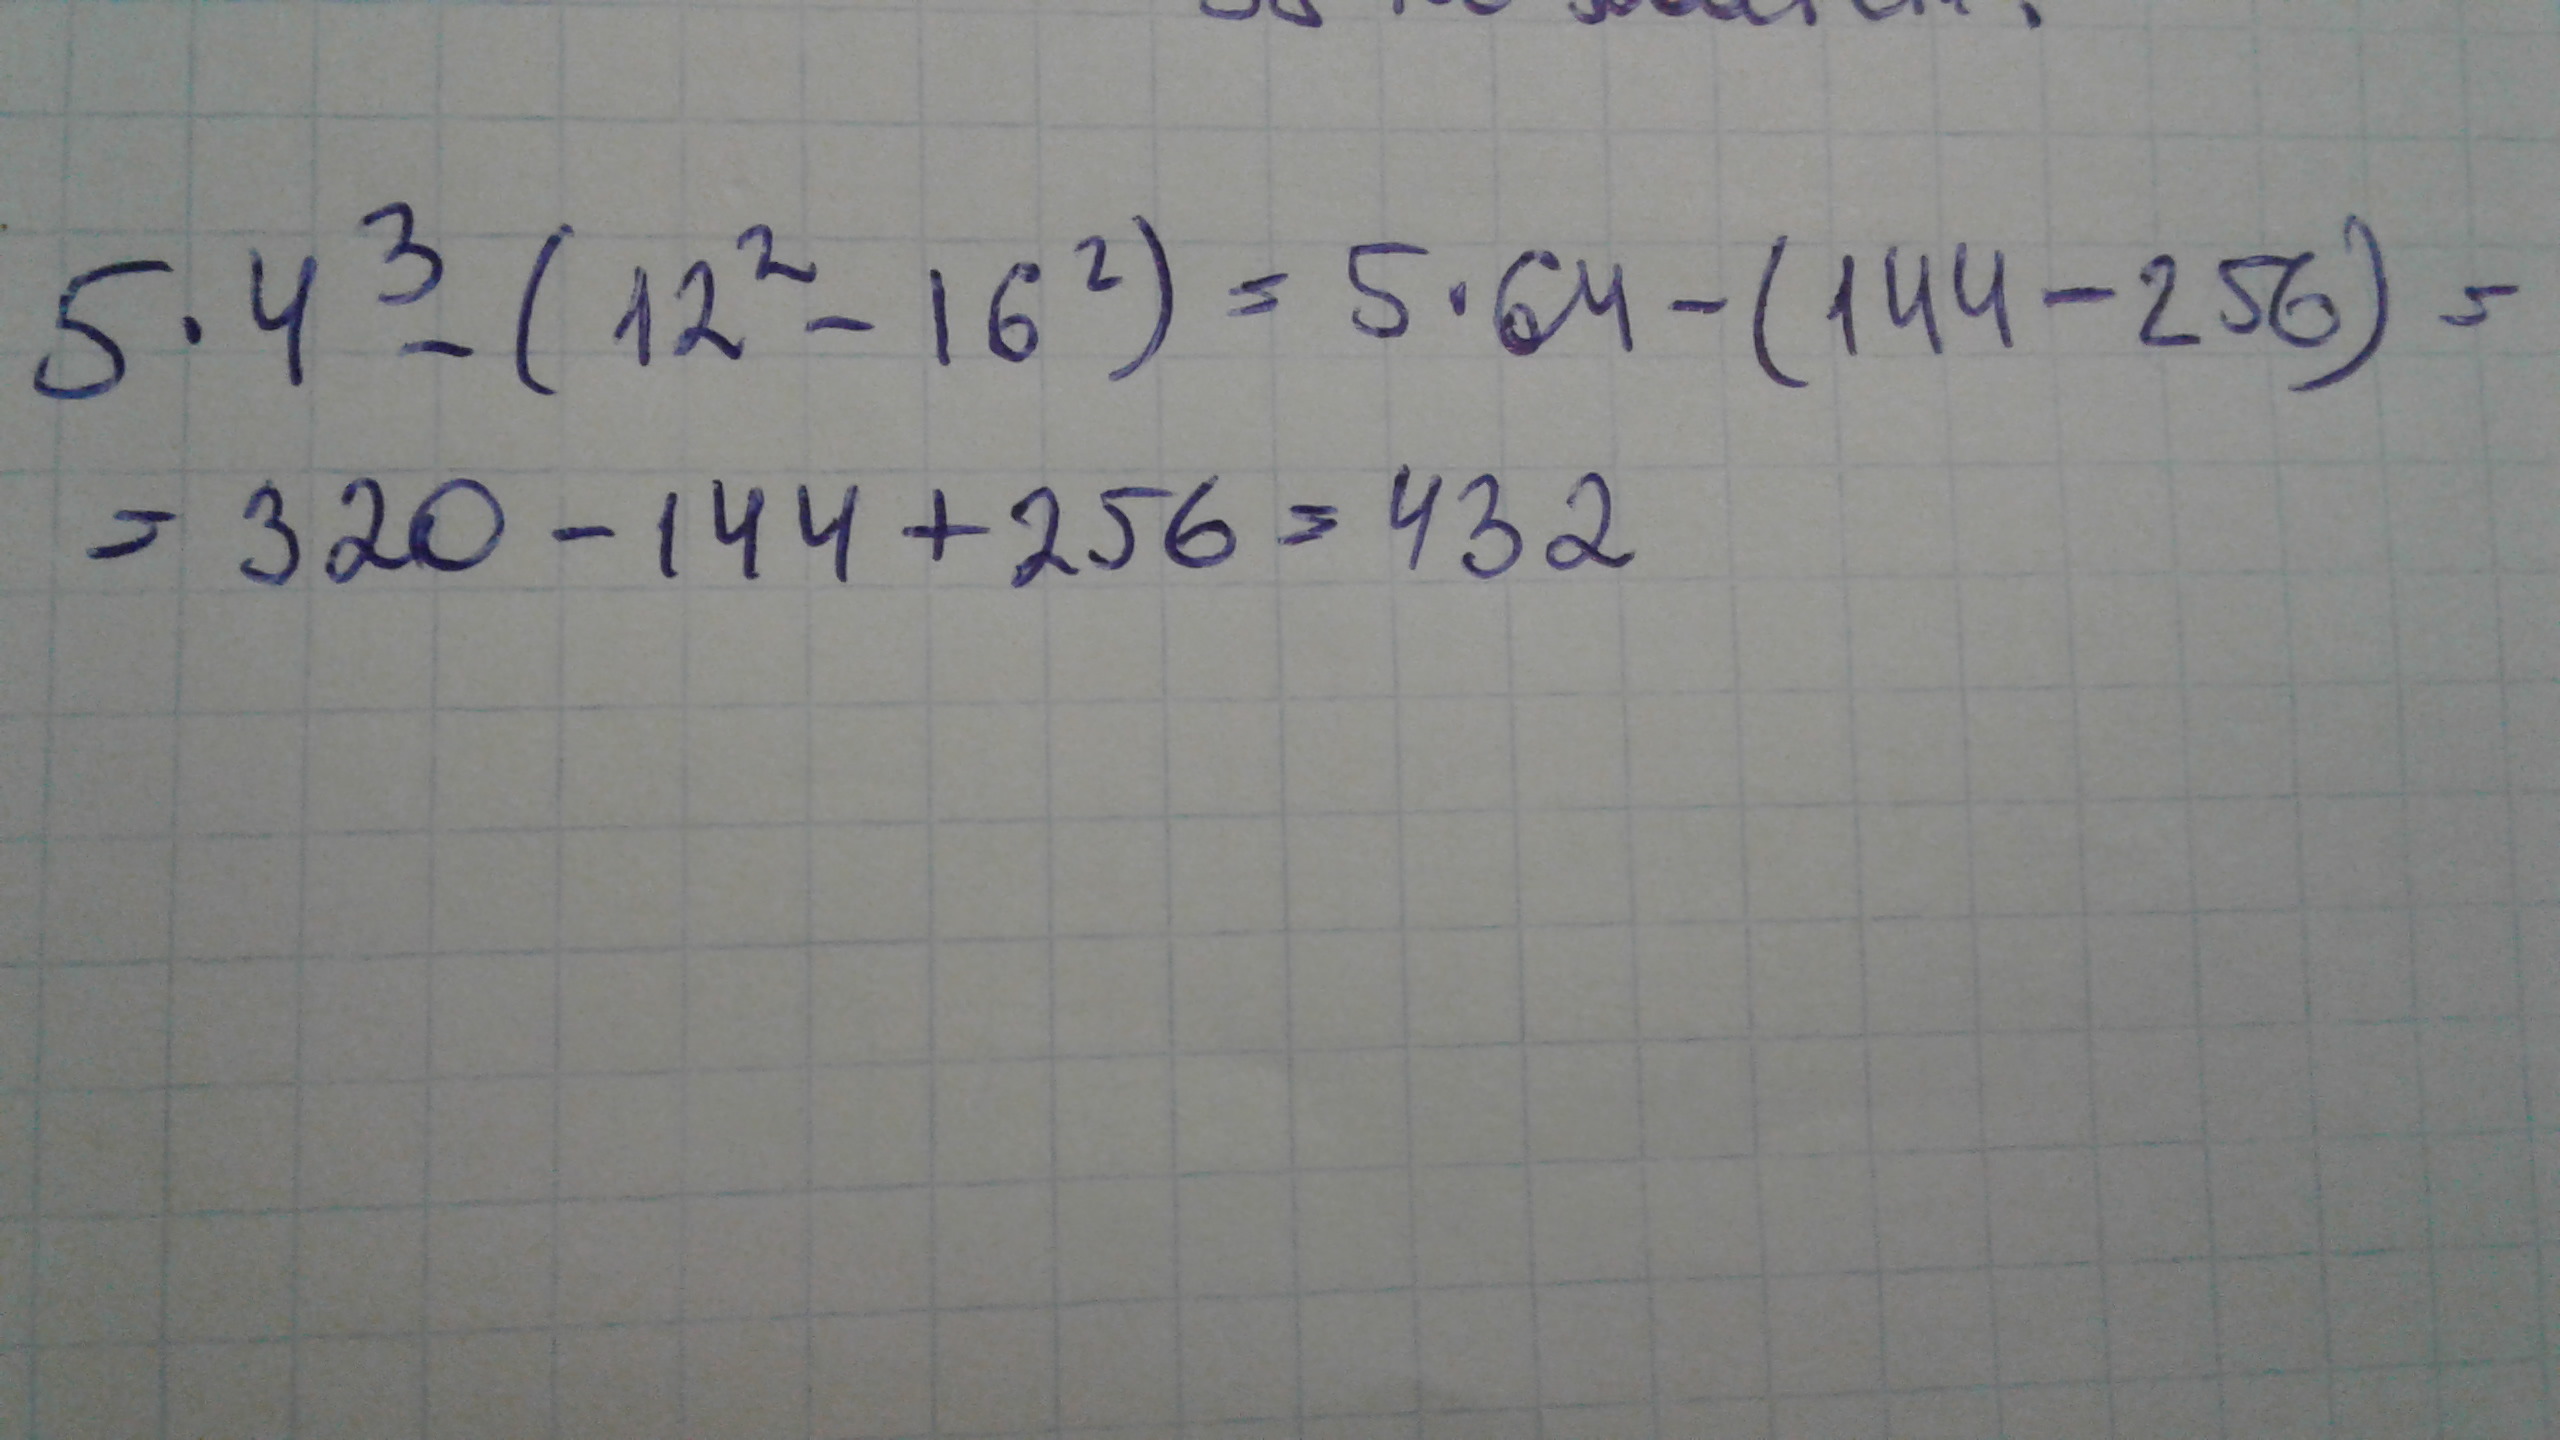 5·4³-(12²-16²)=5·64-(144-256)=
=320-144+256=432